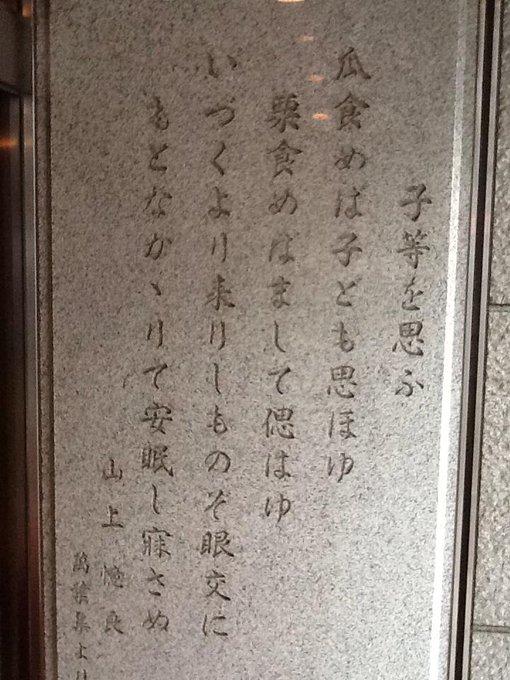 子等を思ふ
瓜食めば子ども思ほゆ
栗食めばまして偲はゆ
いづくより来りしものぞ眼交に
もとなかゝりて安眠し寐さぬ
山上憶良
萬葉集より